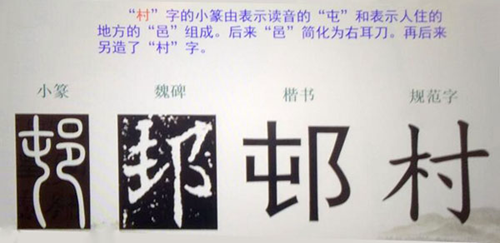 “村”字的小篆由表示读音的“屯”和表示人住的
地方的“邑”组成。后来“邑”简化为右耳刀。再后来
另造了“村”字。
小篆 魏碑 楷书 规范字
邨 邨 邨 村